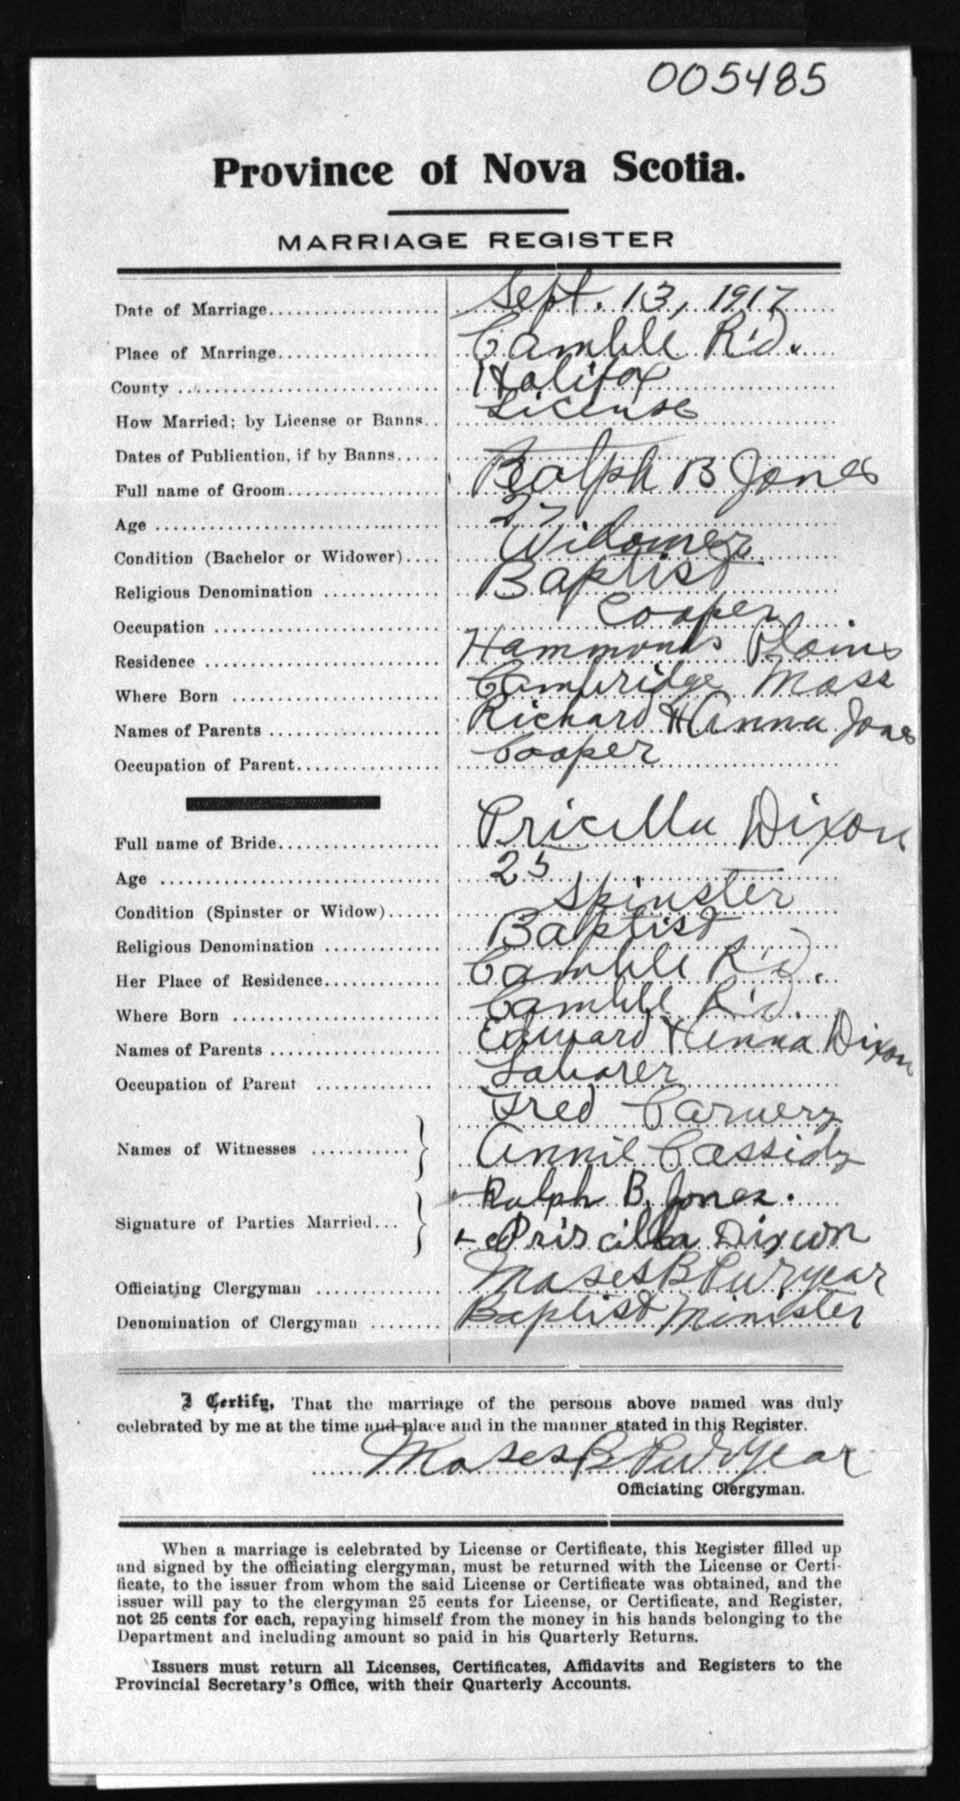 005485
Province of Nova Scotia.
MARRIAGE REGISTER
Date of Marriage Sept. 13, 1917
Place of Marriage Camhill R'd.
County Halifax
How Married; by License or Banns License
Dates of Publication, if by Banns
Full name of Groom Ralph B Jones
Age 27
Condition (Bachelor or Widower) Widower
Religious Denomination Baptist
Occupation Cooper
Residence Hammonds Plains
Where Born Cambridge Mass
Names of Parents Richard & Anna Jones
Occupation of Parent Cooper
Full name of Bride Pricilla Dixon
Age 25
Condition (Spinster or Widow) Spinster
Religious Denomination Baptist
Her Place of Residence Camhill R'd.
Where Born Camhill R'd.
Names of Parents Edward & Anna Dixon
Occupation of Parent Laborer
Fred Carvery
Names of Witnesses Annie Cassidy
Ralph B. Jones.
Signature of Parties Married Priscilla Dixon
Officiating Clergyman Moses B Puryear
Denomination of Clergyman Baptist Minister
I Certify, That the marriage of the persons above named was duly
celebrated by me at the time and place and in the manner stated in this Register.
Moses B Puryear
Officiating Clergyman.
When a marriage is celebrated by License or Certificate, this Register filled up
and signed by the officiating clergyman, must be returned with the License or Certi-
ficate, to the issuer from whom the said License or Certificate was obtained, and the
issuer will pay to the clergyman 25 cents for License, or Certificate, and Register,
not 25 cents for each, repaying himself from the money in his hands belonging to the
Department and including amount so paid in his Quarterly Returns.
Issuers must return all Licenses, Certificates, Affidavits and Registers to the
Provincial Secretary's Office, with their Quarterly Accounts.